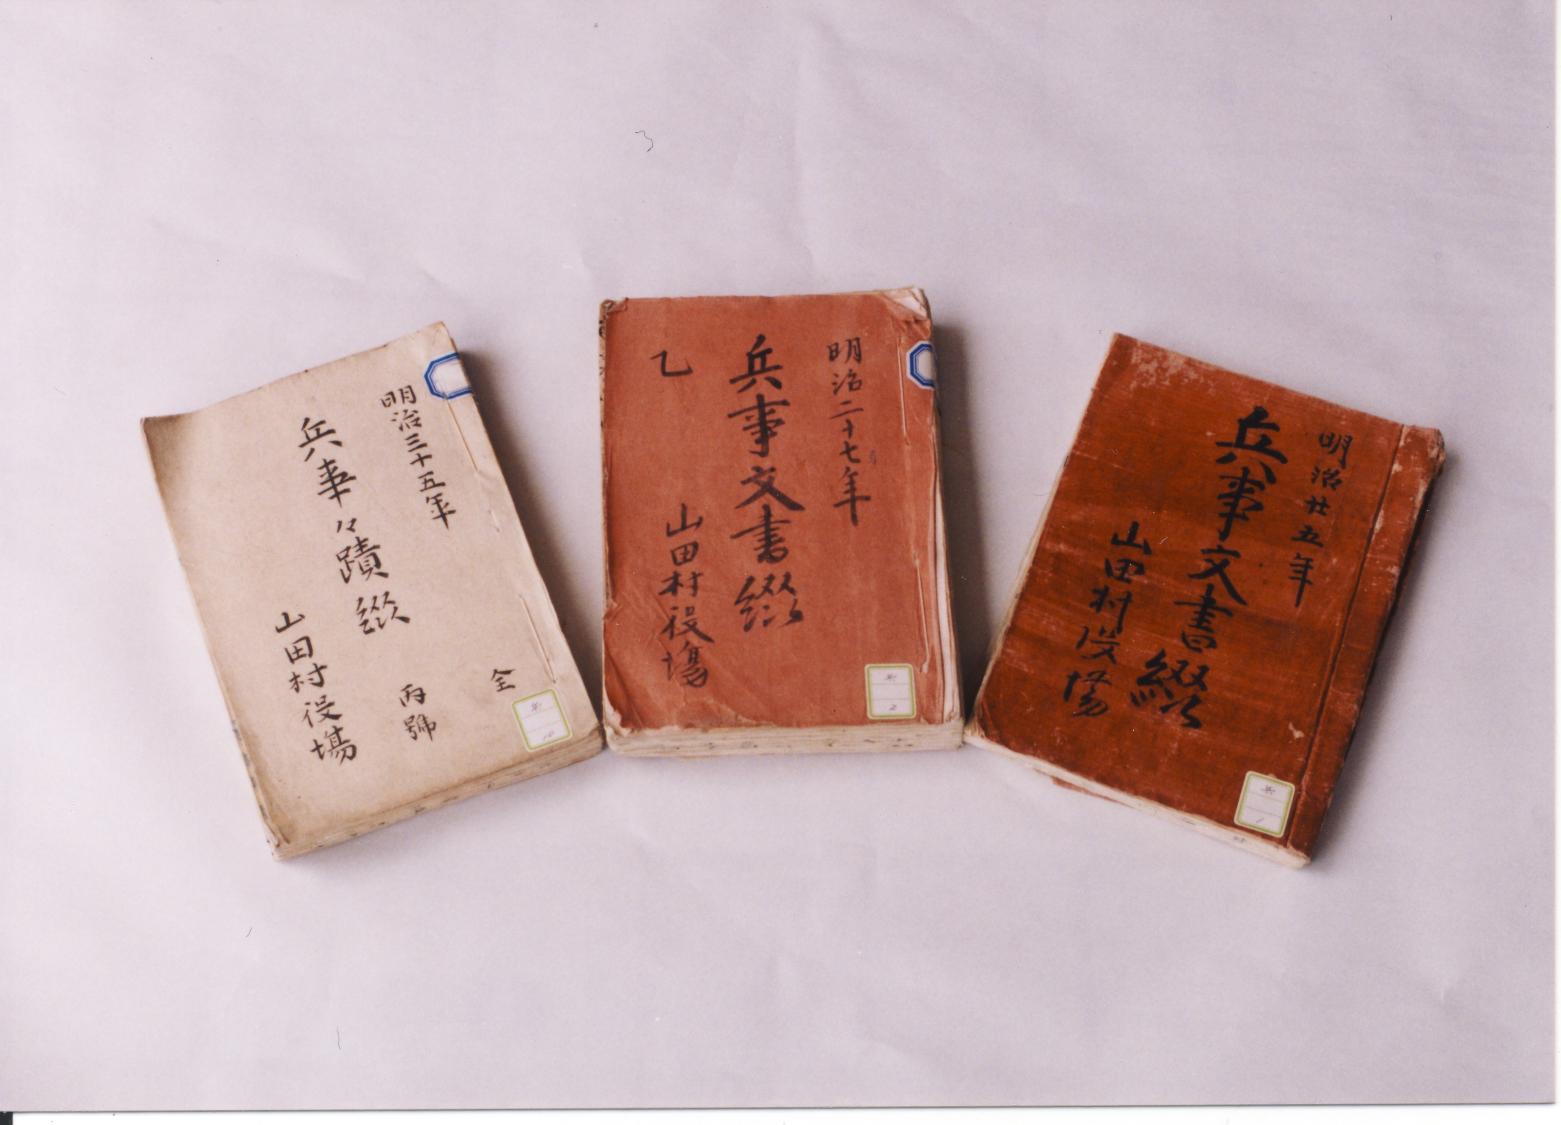 明治廿五年
兵事文書綴
山田村役場
兵
1
明治二十七年
兵事文書綴
乙
山田村役場
兵
2
明治三十五年
兵事々蹟綴
全
丙號
山田村役場
兵
10